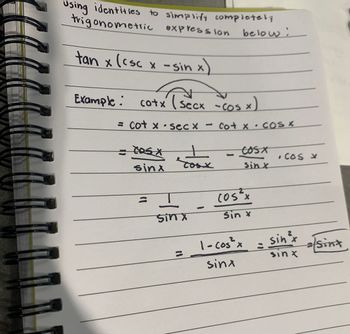 using identities to simplify completely
trigonometric expression below:
tan x (csc x - sin x)
Example: cotx (secx - cos x)
= cot x · sec x - cot x · cos x
= cosx/sinx · 1/cosx - cosx/sinx · cos x
= 1/sin x - cos²x/sin x
= 1-cos²x/sinx = sin²x/sin x = sinx